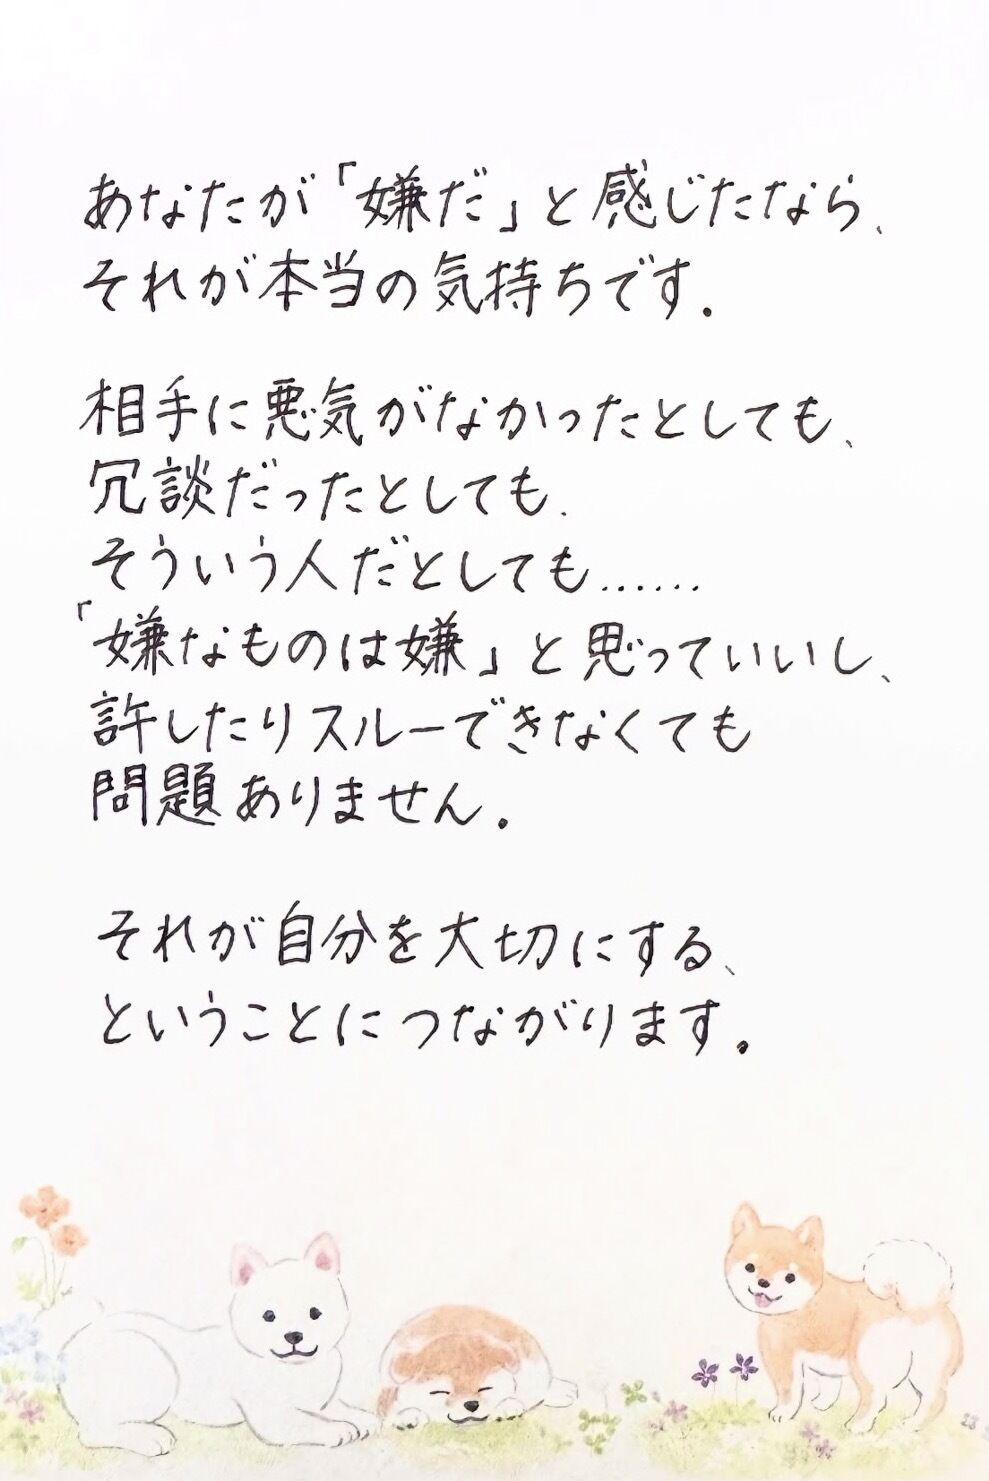 あなたが「嫌だ」と感じたなら、
それが本当の気持ちです。
相手に悪気がなかったとしても、
冗談だったとしても、
そういう人だとしても……
「嫌なものは嫌」と思っていいし、
許したりスルーできなくても
問題ありません。
それが自分を大切にする、
ということにつながります。